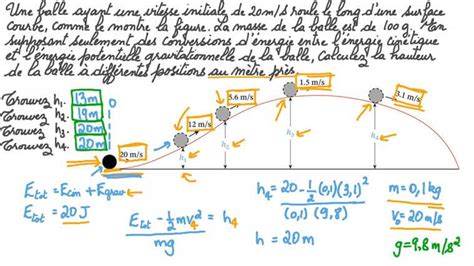 Une balle ayant une vitesse initiale de 20m/s roule le long d'une surface
courbe, comme le montre la figure. La masse de la balle est de 100 g. En
supposant seulement des conversions d'énergie entre l'énergie cinétique
et l'énergie potentielle gravitationnelle de la balle, Calculez la hauteur
de la balle à différentes positions au mètre près.
Trouvez h₁. 13m
Trouvez h₂. 19m
Trouvez h₃. 20m
Trouvez h₄. 20m
0
20 m/s
12 m/s
5.6 m/s
1.5 m/s
3.1 m/s
h₁
h₂
h₃
h₄
E_tot = E_cin + E_grav
E_tot = 20 J
E_tot - ½mv₄² = h₄
mg
h₄ = 20 - ½(0,1)(3,1)²
(0,1) (9,8)
h = 20m
m = 0,1 kg
v₀ = 20 m/s
g = 9,8 m/s²